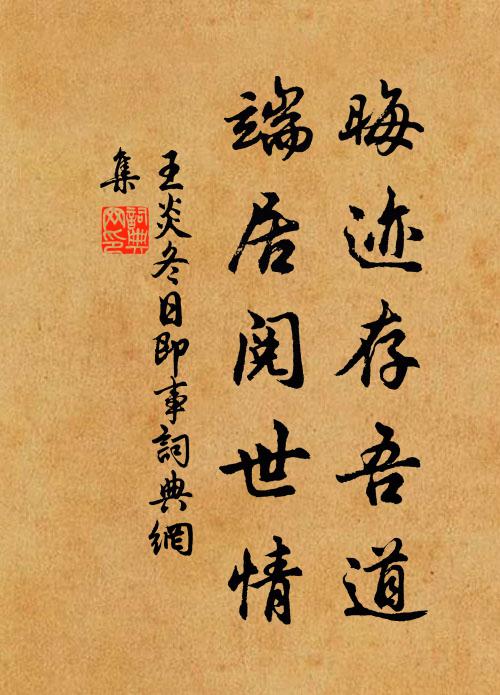 晦迹存吾道
端居阅世情
王炎冬日即事詞典網
集
詞典
网印